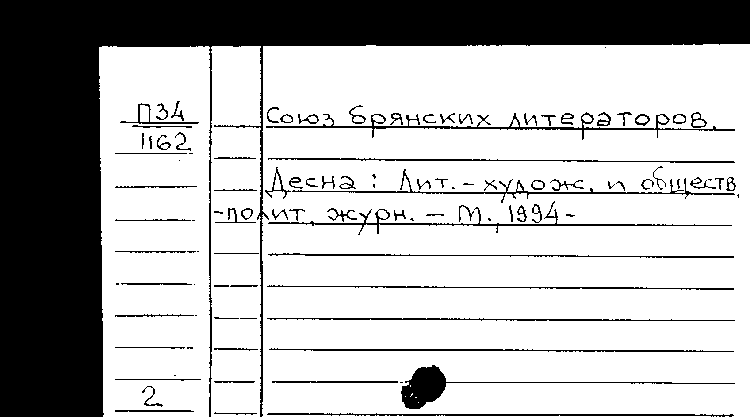 П34
1162
Союз брянских литераторов.
Десна : Лит.-худож. и обществ.
-полит. журн. — М., 1994-
2